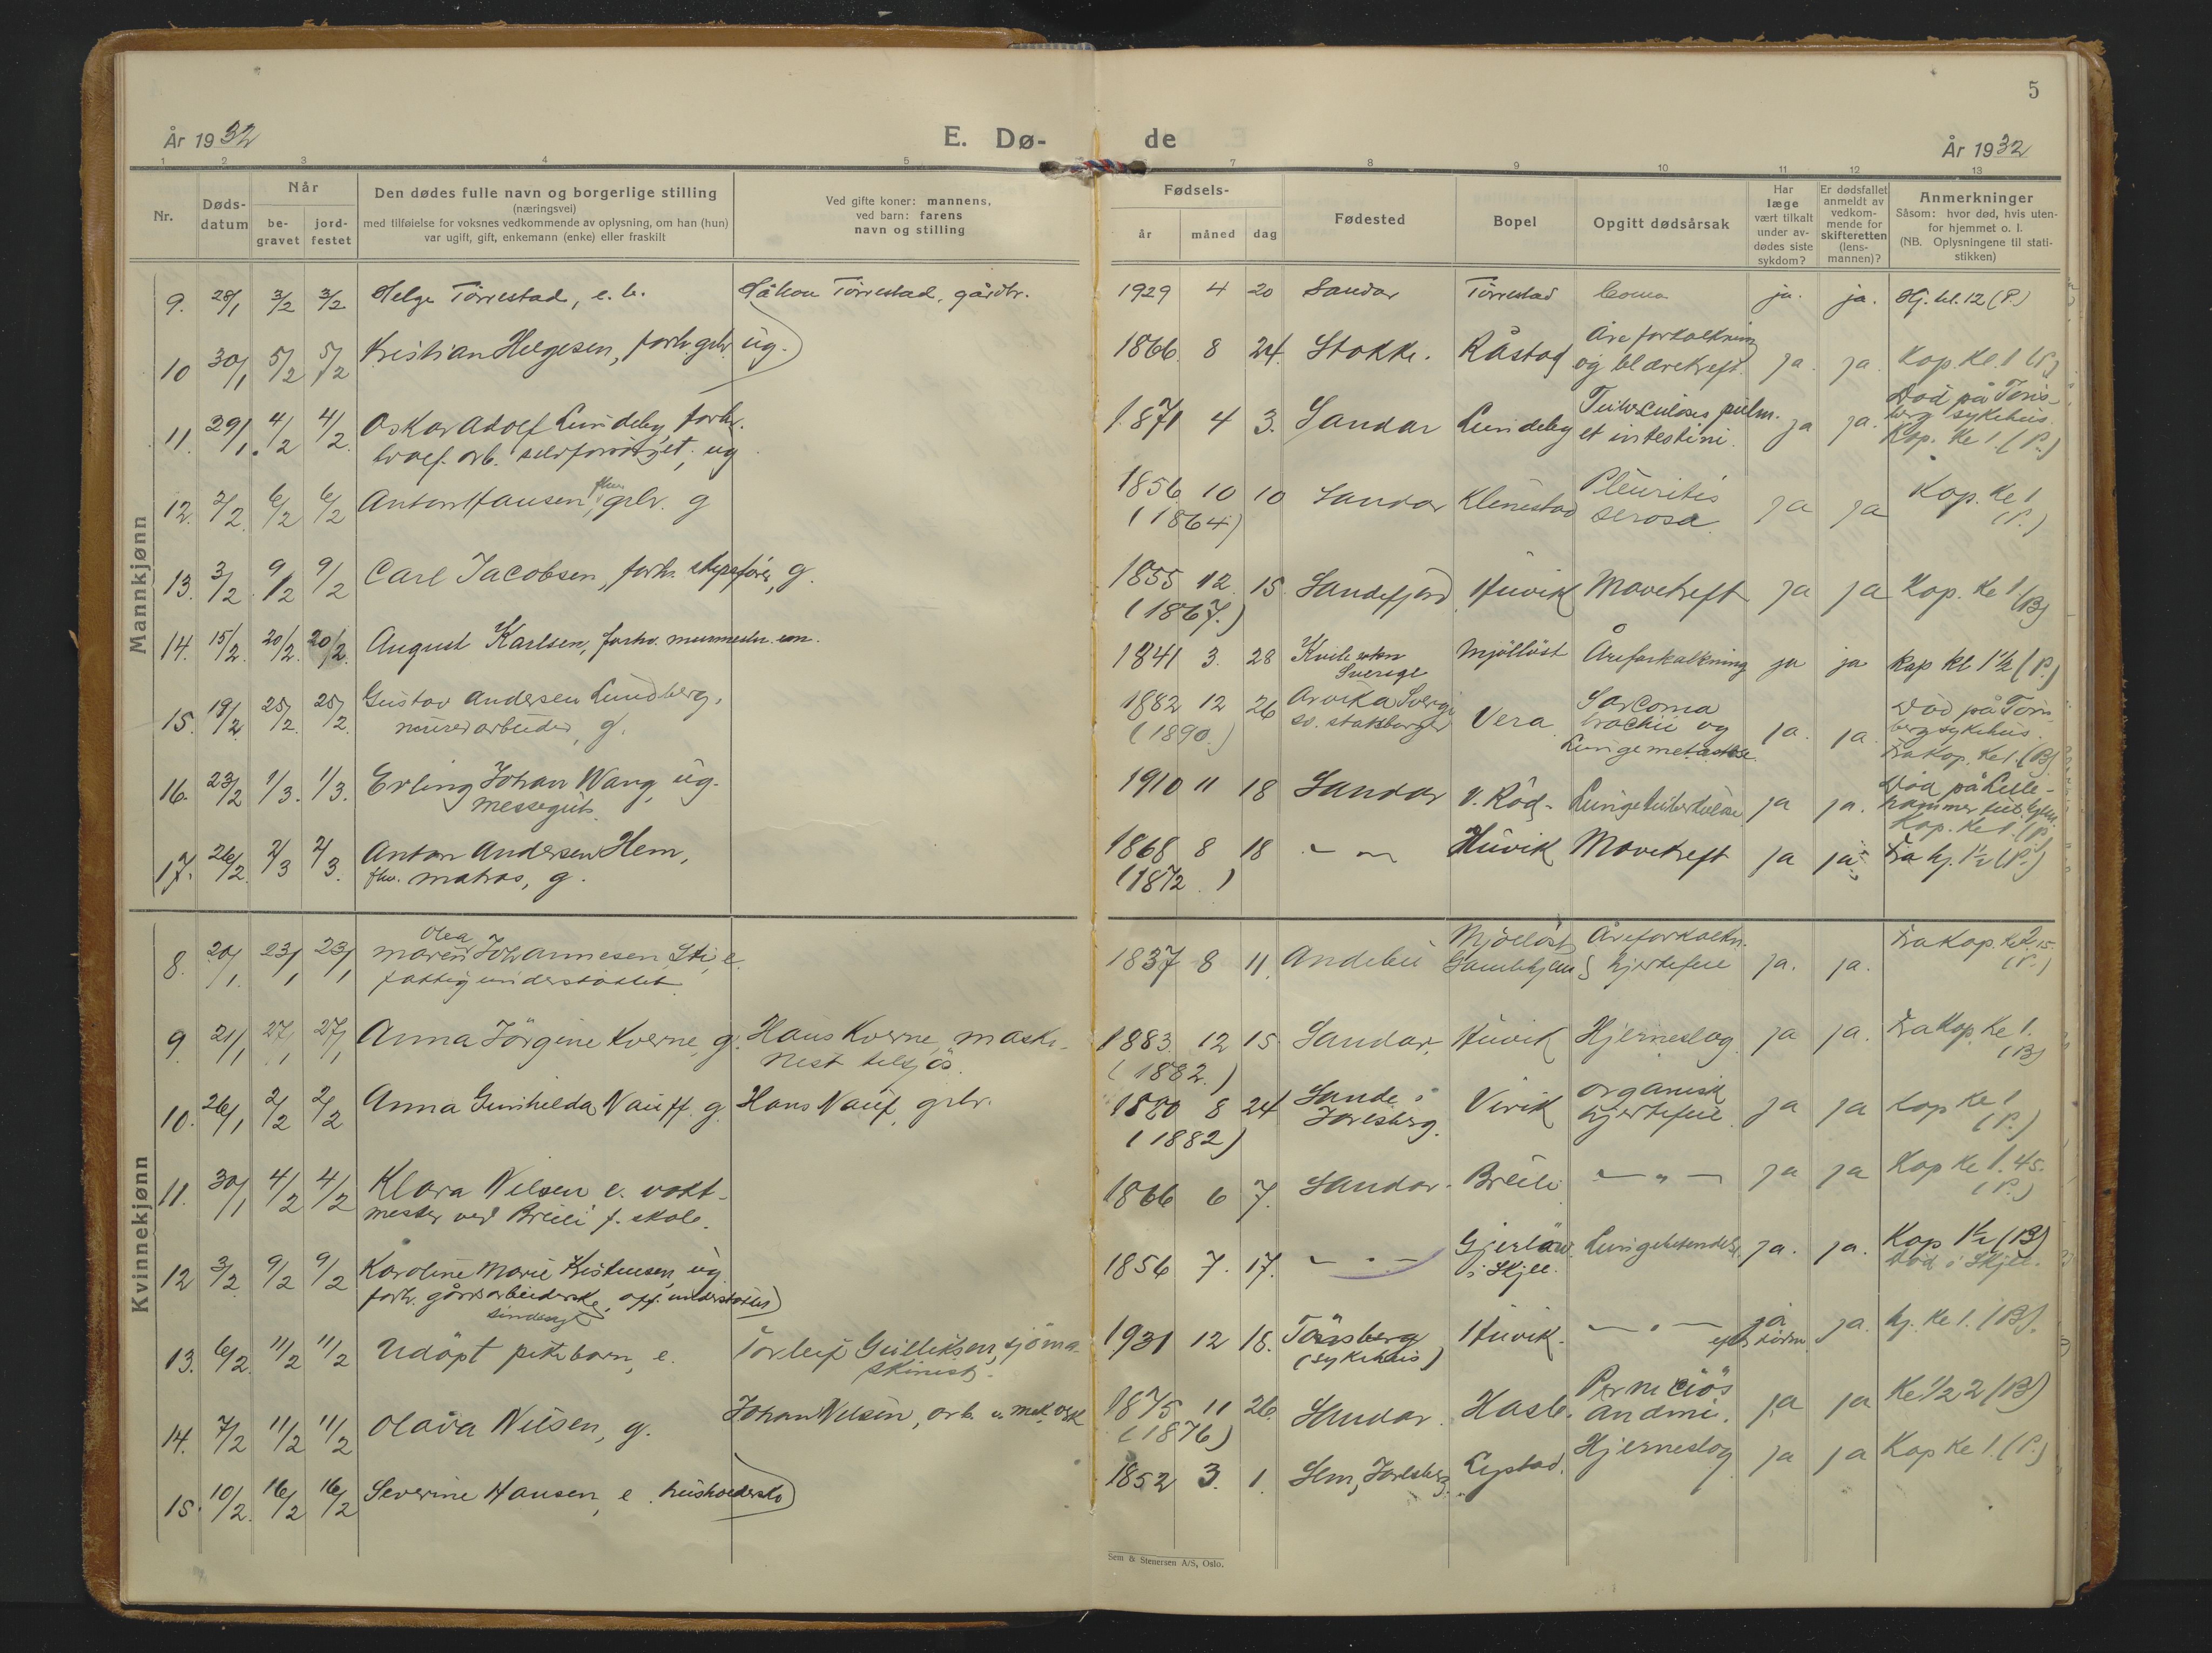 5
År 1932
E. Dø-
de
År 1932
1 2 3 4 5 7 8 9 10 11 12 13
Nr.
Døds-
datum
Når
be-
gravet
jord-
festet
Den dødes fulle navn og borgerlige stilling
(næringsvei)
med tilføielse for voksnes vedkommende av oplysning, om han (hun)
var ugift, gift, enkemann (enke) eller fraskilt
Ved gifte koner: mannens,
ved barn: farens
navn og stilling
Fødsels-
år
måned
dag
Fødested
Bopel
Opgitt dødsårsak
Har
læge
vært tilkalt
under av-
dødes siste
sykdom?
Er dødsfallet
anmeldt av
vedkom-
mende for
skifteretten
(lens-
mannen)?
Anmerkninger
Såsom: hvor død, hvis uten-
for hjemmet o. l.
(NB. Oplysningene til stati-
stikken)
Mannkjønn
9. 28/1 3/2 3/2 Helge Törrestad, e. b. Håkon Törrestad, gårdbr. 1929 4 20 Sandar Törrestad Coma ja. ja. Hj. kl. 12 (P.)
10 30/1 5/2 5/2 Kristian Helgesen, forh. grbr ug. 1866. 8 24. Stokke. Råstad Åreforkalkning
og blærekreft. ja. ja. Kap. Kl. 1 (P.)
11. 29/1 4/2 4/2 Oskar Adolf Lundeby, forh.
hvalf. arb. selvforsörget, ug 1871 4 3. Sandar Lundeby Tuberculosis pulm.
et intestini. ja ja. Död på Töns-
berg sykehus.
Kap. Kl 1 (P.)
12. 2/2 6/2 6/2 Anton Hansen, fhv. grbr. g 1856 10 10 Sandar Klinestad Pleuritis
serosa ja ja Kap. Kl 1
(P.)
(1864)
13. 3/2 9/2 9/2 Carl Jacobsen, forh. skipsförer, g. 1855 12 15 Sandefjord Huvik Mavekreft ja ja Kap. Kl 1
(B)
(1867.)
14. 15/2 20/2 20/2 August Karlsen, forhv. murmester em. 1841 3. 28 Kville sokn
Sverige Mjölløst Åreforkalkning ja ja Kap kl 1½ (P.)
15. 19/2 25/2 25/2 Gustav Andersen Lundberg,
murerarbeider, g. 1882 12 26 Arvika Sverige
sv. statsborger Vera Sarcoma
brachii og
Lungemetastase. ja. ja Död på Töns-
berg sykehus.
Fra kap. Kl 1. (B)
(1890.)
16. 23/2 1/3. 1/3. Erling Johan Wang, ug.
messegutt. 1910 11 18 Sandar V. Röd. Lungetuberkulose ja ja. Död på Lille-
hammer tub. hjem.
Kap. Kl 1. (P.)
17. 26/2 2/3 2/3. Anton Andersen Hem,
fhv. matros, g. 1868 8 18 — „ — Huvik Mavekreft ja ja Fra hj. 1½ (P.)
(1872)
Kvinnekjønn
8. 20/1 23/1 23/1 Maren Olea Johannesen Sti, e.
fattigunderstöttet. 1837 8 11. Andebu Mjölløst
Gamlehjem Åreforkalkn.
& hjertefeil ja. ja. Fra Kap. Kl 2.15.
(P.)
9. 21/1 27/1 27/1 Anna Jörgine Kverne, g. Hans Kverne, maski-
nist tilsjös. 1883. 12 15 Sandar. Huvik Hjerneslag ja ja. Fra Kap. Kl 1.
(B)
(1882.)
10. 26/1 2/2 2/2 Anna Gunhilda Nauff. g. Hans Nauf, grbr. 1880 8 24 Sande i
Jarlsberg. Virik organisk
hjertefeil ja ja Kap Kl 1
(P.)
(1882)
11. 30/1 4/2 4/2 Klara Nilsen e. vakt-
mester ved Breili f. skole. 1866 6 7. Sandar. Breili — „ — ja ja Kap Kl 1.45.
(P.)
12 3/2 9/2 9/2 Karoline Marie Kristensen, ug.
forh. gårdsarbeiderske, off. understöttet
sindssyk 1856 7. 17. — „ — Gjerlöv
i Skjee. Lungebetendelse. ja. ja. Kap 1½ (B)
Död i Skjee.
13. 6/2 11/2 11/2 Udöpt pikebarn, e. Torleif Gulliksen, sjöma-
skinist. 1931 12 18. Tönsberg
(sykehus) Huvik. — „ — ja ja. hj. Kl 1. (B).
14. 7/2 11/2 11/2 Olava Nilsen, g. Johan Nilsen, arb. v. mek. verk 1875 11 26. Sandar. Hasle. Perniciös
anæmi. ja ja Kl ½ 2 (B)
(1876)
15. 10/2 16/2 16/2 Severine Hansen, e. husholderske 1852 3. 1. Sem, Jarlsberg. Lystad. Hjerneslag ja ja Kap Kl 1. (P.)
Sem & Stenersen A/S, Oslo.